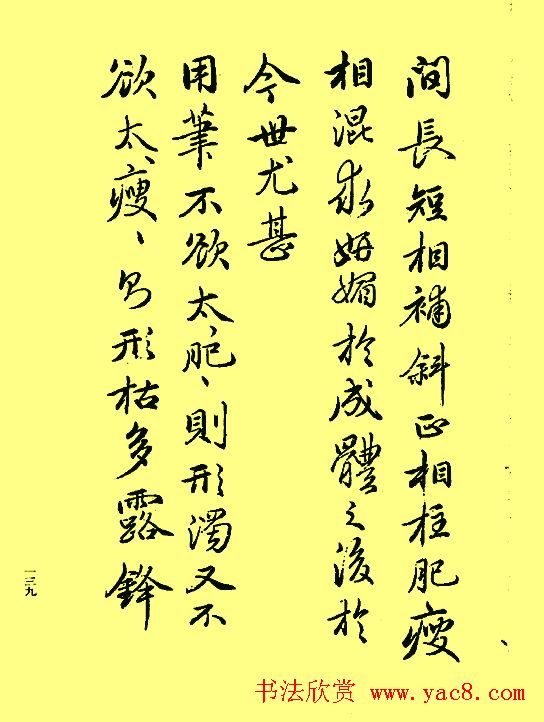 間長短相補斜正相柱肥瘦
相混求妍媚於成體之後於
今世尤甚
用筆不欲太肥、則形濁又不
欲太瘦、則形枯多露鋒
一三九
书法欣赏 www.yac8.com